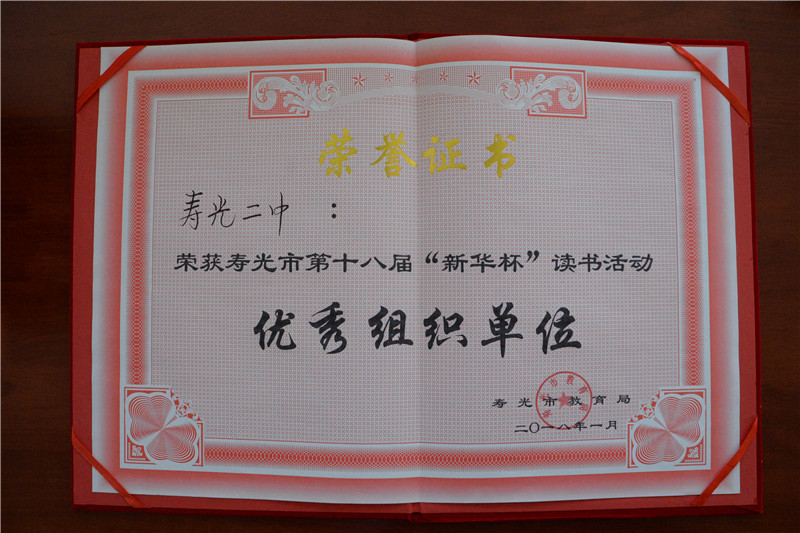 荣誉证书
寿光二中 :
荣获寿光市第十八届“新华杯”读书活动
优秀组织单位
寿光市教育局
二〇一八年一月